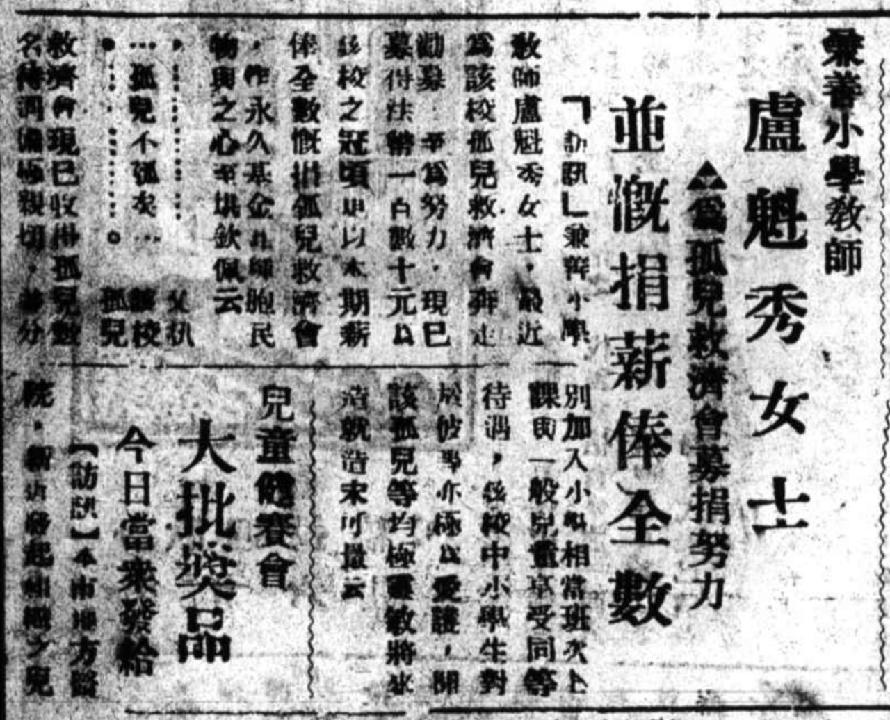 兼善小學教師
盧魁秀女士
▲為孤兒救濟會募捐努力
並慨捐薪俸全數
「訪訊」兼善小學
教師盧魁秀女士，最近
為該校孤兒救濟會奔走
勸募，至為努力，現已
募得法幣一百數十元以
該校之冠頃更以本期薪
俸全數慨捐孤兒救濟會
，作永久基金其師胞民
物與之心至堪欽佩云
…孤兒不孤矣… 該校
孤兒
救濟會現已收得孤兒數
名待遇備極親切，
別加入小學相當班次上
課與一般兒童享受同等
待遇，該校中小學生對
於彼等亦極以愛護，聞
該孤兒等均極靈敏將來
造就當未可量云
兒童健賽會
大批獎品
今日當眾發給
【訪訊】本市地方醫
院，新近發起組織之兒